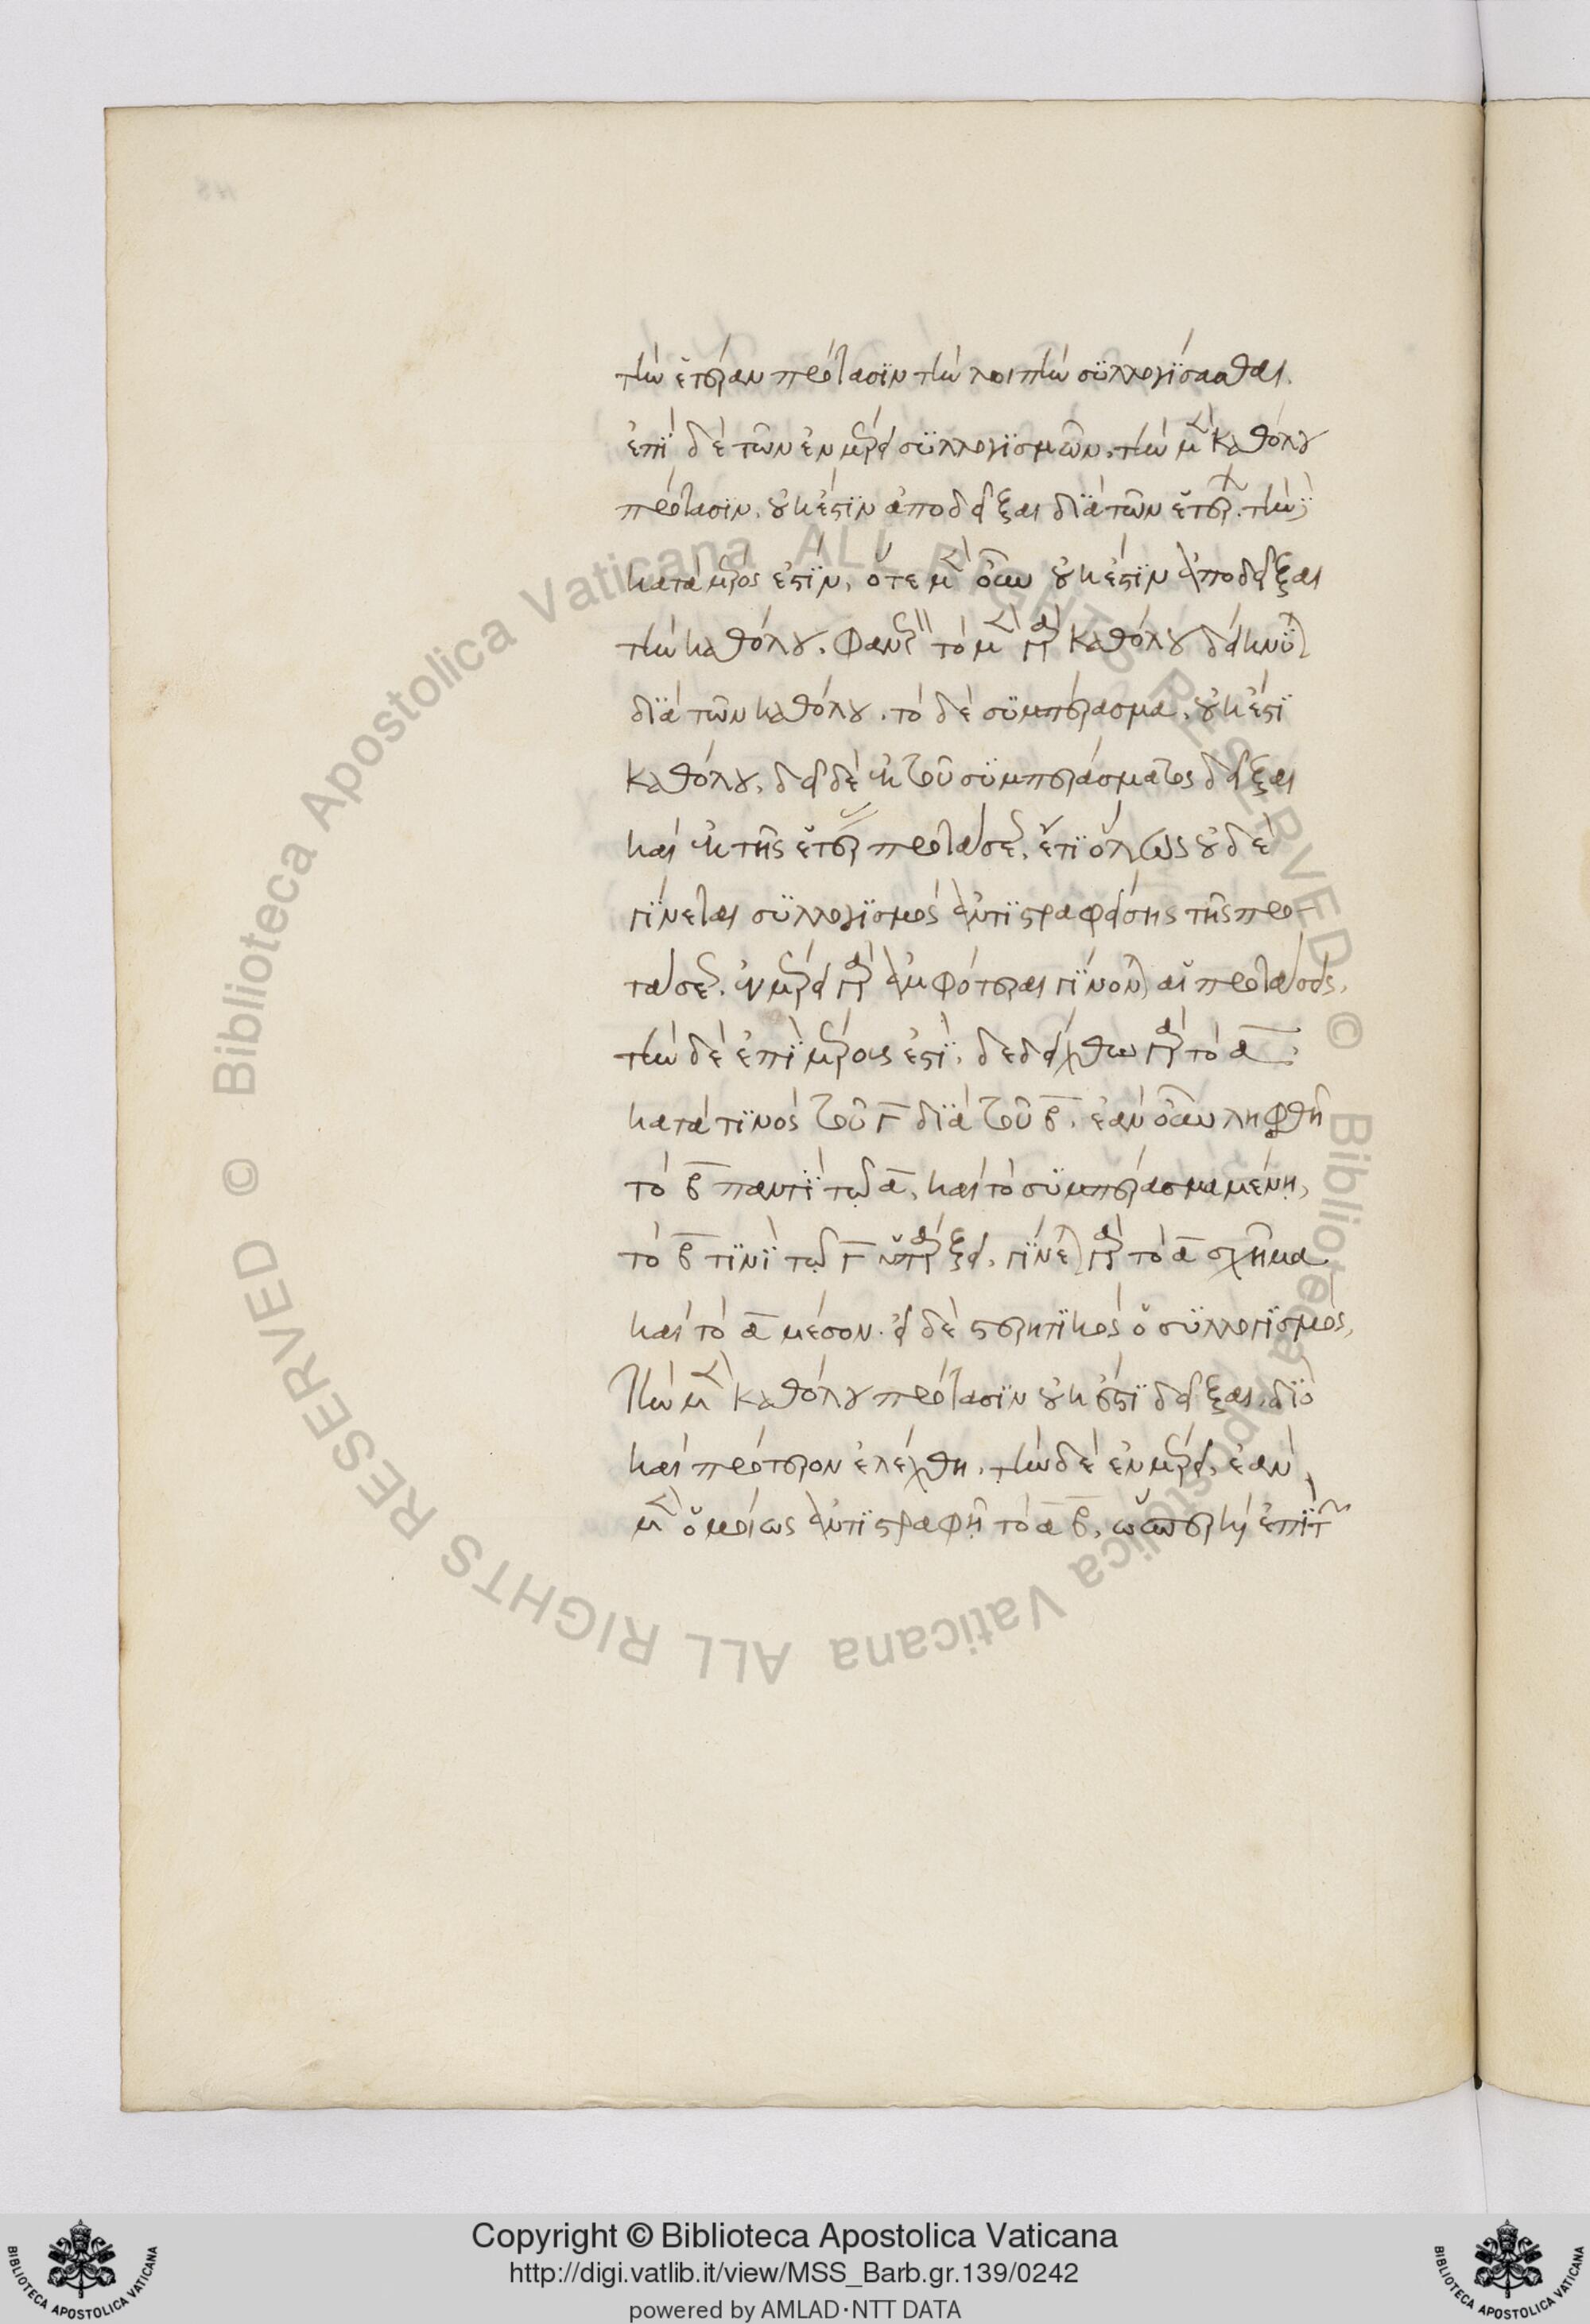 τὴν ἑτέραν πρότασιν τὴν λοιπὴν συλλογίσασθαι.
ἐπὶ δὲ τῶν ἐν μέρει συλλογισμῶν, τὴν μὲν καθόλου
πρότασιν, οὐκ ἔστιν ἀποδεῖξαι διὰ τῶν ἑτέρων. τὴν δὲ
κατὰ μέρος ἔστιν, ὅτι μὲν οὖν οὐκ ἔστιν ἀποδεῖξαι
τὴν καθόλου, φανερὸν. τὸ μὲν γὰρ καθόλου δείκνυται
διὰ τῶν καθόλου. τὸ δὲ συμπέρασμα, οὐκ ἔστι
καθόλου, δεῖ δὲ ἐκ τοῦ συμπεράσματος δεῖξαι
καὶ ἐκ τῆς ἑτέρας προτάσεως. ἔτι ὅλως οὐδὲ
γίνεται συλλογισμὸς ἀντιστραφείσης τῆς προ
τάσεως. ἐν μέρει γὰρ ἀμφότεραι γίνονται αἱ προτάσεις,
τὴν δὲ ἐπὶ μέρους ἔστι. δεδείχθω γὰρ τὸ α
κατὰ τινὸς τοῦ γ διὰ τοῦ β. ἐὰν οὖν ληφθῆ
τὸ β παντὶ τῷ α, καὶ τὸ συμπέρασμα μένῃ,
τὸ β τινὶ τῷ γ ὑπάρξει. γίνεται γὰρ τὸ α σχῆμα
καὶ τὸ α μέσον. εἰ δὲ στερητικὸς ὁ συλλογισμὸς,
τὴν μὲν καθόλου πρότασιν οὐκ ἔστι δεῖξαι, διὸ
καὶ πρότερον ἐλέχθη. τὴν δὲ ἐν μέρει, ἐὰν
μὲν ὁμοίως ἀντιστραφῇ τὸ α β, ὥσπερ καὶ ἐπὶ τῶν
Copyright © Biblioteca Apostolica Vaticana
http://digi.vatlib.it/view/MSS_Barb.gr.139/0242
powered by AMLAD·NTT DATA